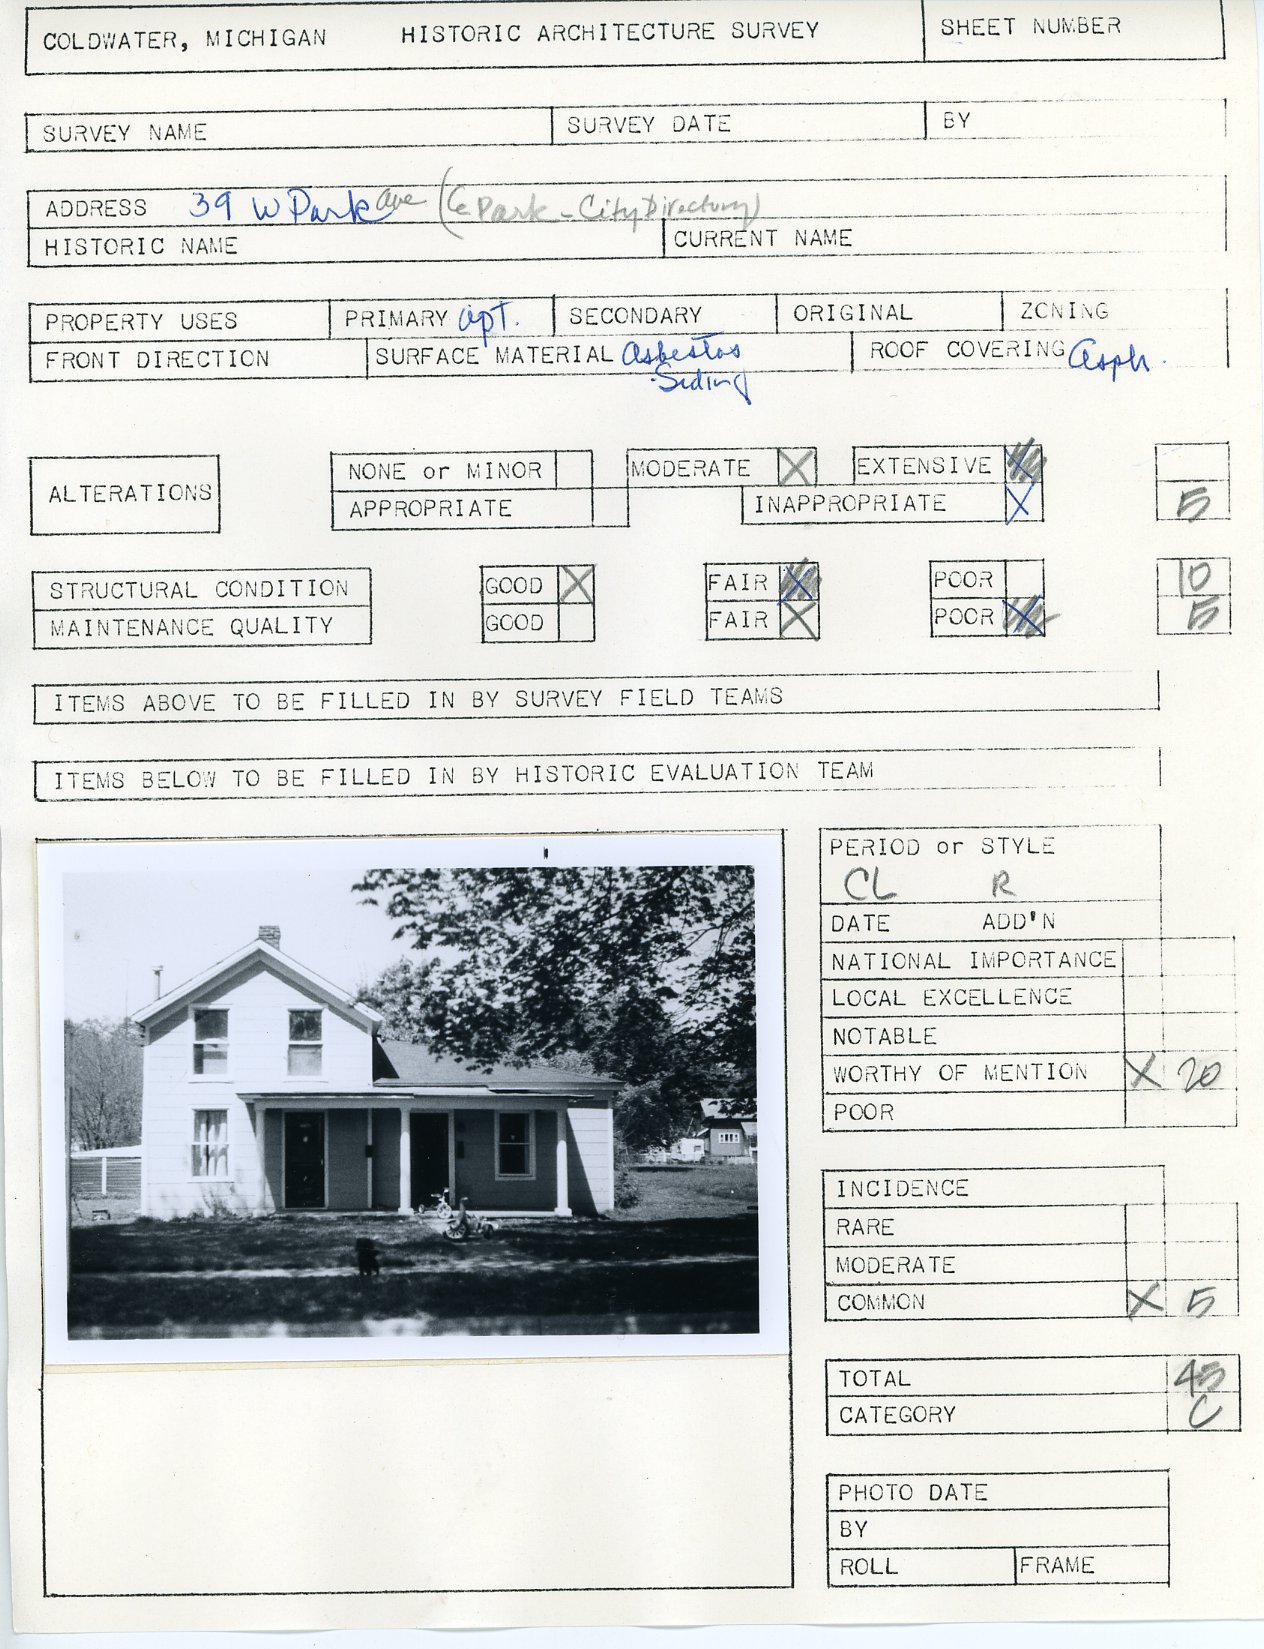 COLDWATER, MICHIGAN HISTORIC ARCHITECTURE SURVEY SHEET NUMBER
SURVEY NAME SURVEY DATE BY
ADDRESS 39 W Park ave (E Park - City Directory)
HISTORIC NAME CURRENT NAME
PROPERTY USES PRIMARY apt. SECONDARY ORIGINAL ZONING
FRONT DIRECTION SURFACE MATERIAL Asbestos ROOF COVERING Asph.
Siding
ALTERATIONS NONE or MINOR MODERATE X EXTENSIVE X
APPROPRIATE INAPPROPRIATE X 5
STRUCTURAL CONDITION GOOD X FAIR X POOR 10
MAINTENANCE QUALITY GOOD FAIR X POOR X 5
ITEMS ABOVE TO BE FILLED IN BY SURVEY FIELD TEAMS
ITEMS BELOW TO BE FILLED IN BY HISTORIC EVALUATION TEAM
PERIOD or STYLE
CL R
DATE ADD'N
NATIONAL IMPORTANCE
LOCAL EXCELLENCE
NOTABLE
WORTHY OF MENTION X 20
POOR
INCIDENCE
RARE
MODERATE
COMMON X 5
TOTAL 45
CATEGORY C
PHOTO DATE
BY
ROLL FRAME